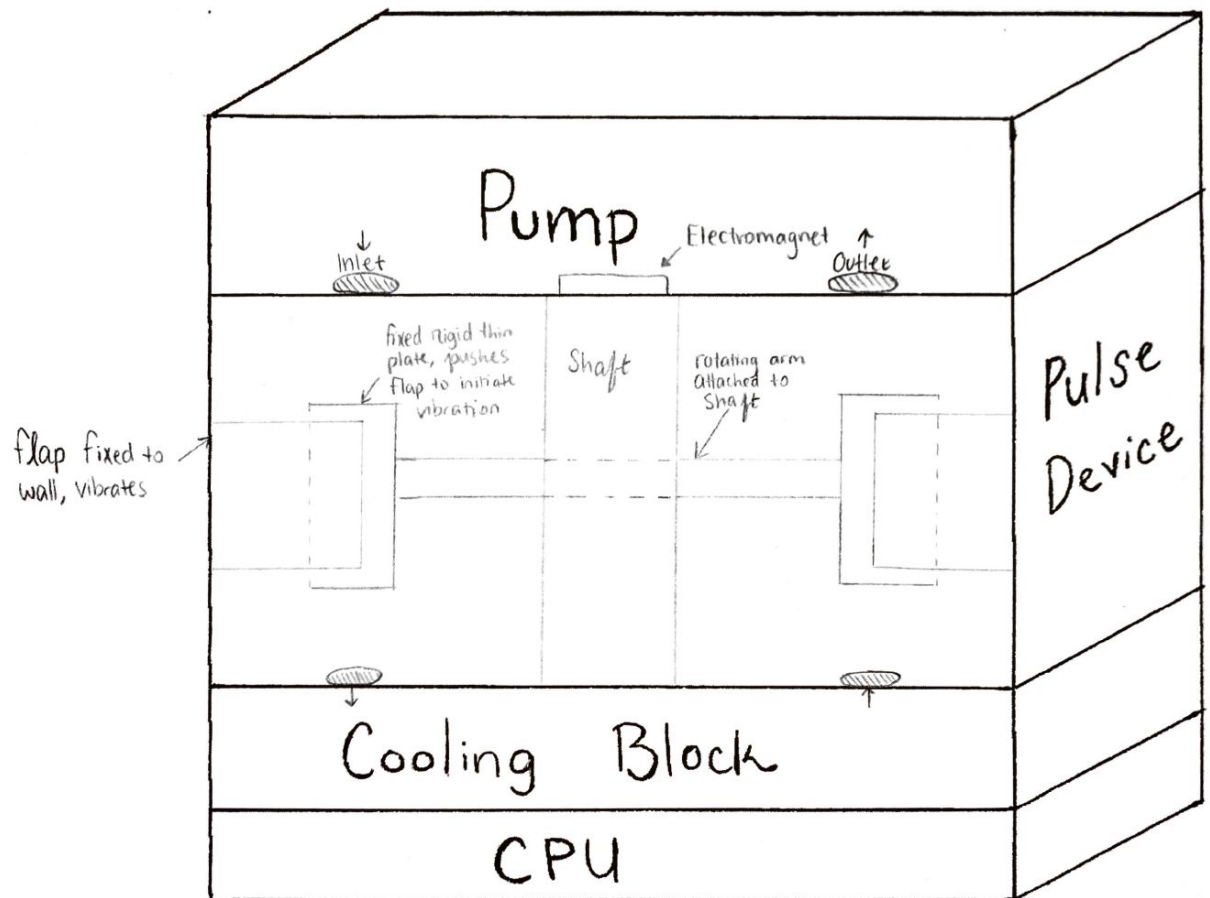 Pump
Electromagnet
Inlet
Outlet
fixed rigid thin
plate, pushes
flap to initiate
vibration
Shaft
rotating arm
attached to
Shaft
Pulse
Device
flap fixed to
wall, vibrates
Cooling Block
CPU